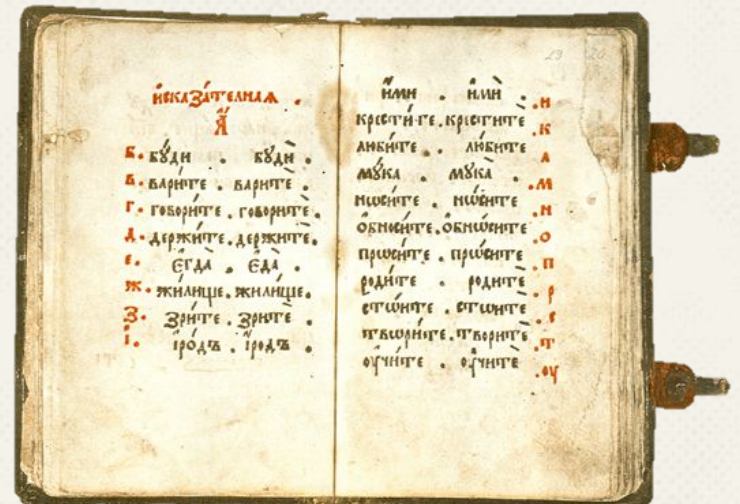 и҆сказа́телнаѧ .
А҆́
Б. бу́ди . буди̑ .
В. вари́те . варитѐ .
Г. говори́те . говоритѐ .
Д. держи́те . держитѐ .
Е. Є҆гда̀ . Є҆да̀ .
Ж. жили́ще . жили́ще .
З. Зри́те . Зритѐ .
І. і҆́родъ . і҆́родъ .
23 20
и҆́ми . и҆мѝ . и
крести́те . креститѐ . к
люби́те . лю́бите . л
му́ка . мука̀ . м
нѡси́те . нѡ́сите . н
ѻ҆бноси́те . ѻ҆бнѡ́сите . о
прѡси́те . прѡ́сите . п
роди́те . родитѐ . р
стѡ́ите . стѡитѐ . с
твѡри́те . творитѐ . т
оу҆чи́те . оу҆читѐ . оу